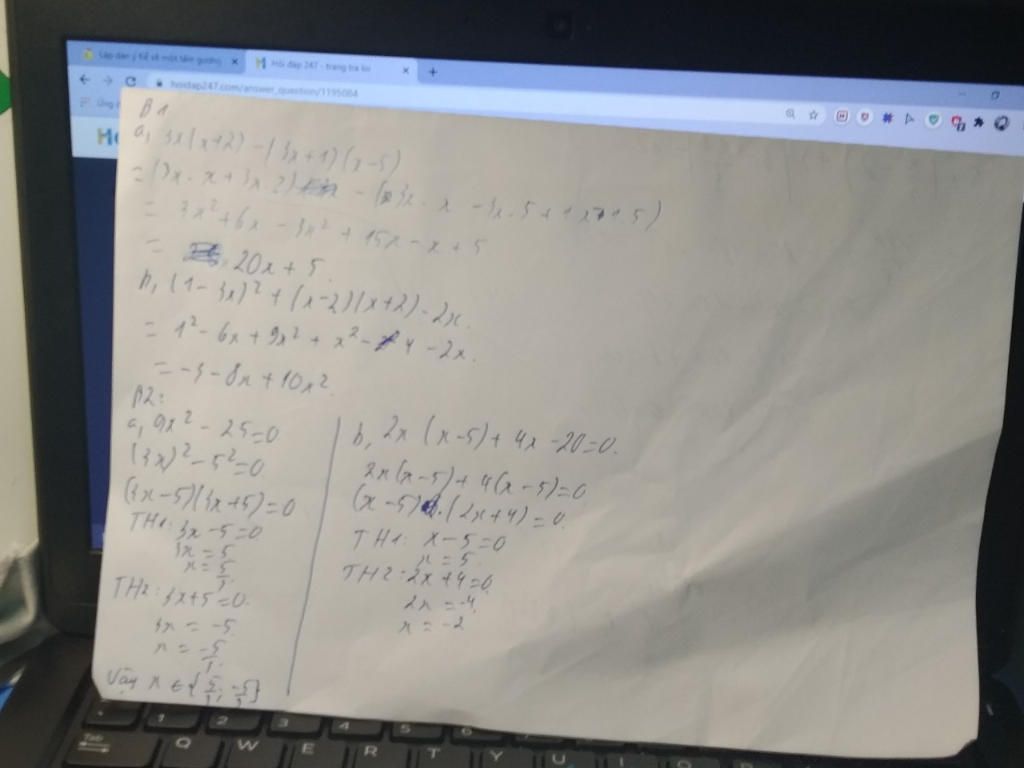 Lập dàn ý kể về một tấm gương
Hỏi đáp 247 - trang tra lời
hoidap247.com/answer_question/1195084
B1
a, 3x(x+2) - (3x+1)(x-5)
= (3x.x+3x.2) - (3x.x - 3x.5 + 1x - 1.5)
= 3x²+6x - 3x² + 15x - x + 5
= 20x + 5.
b, (1-3x)² + (x-2)(x+2) - 2x.
= 1² - 6x + 9x² + x² - 4 - 2x.
= -3 - 8x + 10x²
B2:
a, 9x² - 25 = 0
(3x)² - 5² = 0
(3x-5)(3x+5) = 0
TH1: 3x-5=0
3x = 5
x = 5/3
TH2: 3x+5=0.
3x = -5
x = -5/3
Vậy x ∈ {5/3; -5/3}
b, 2x(x-5) + 4x - 20 = 0.
2x(x-5) + 4(x-5) = 0
(x-5).(2x+4) = 0.
TH1: x-5=0
x = 5.
TH2: 2x+4=0.
2x = -4
x = -2
Tab
1 2 3 4 5 6
Q W E R T Y U I O